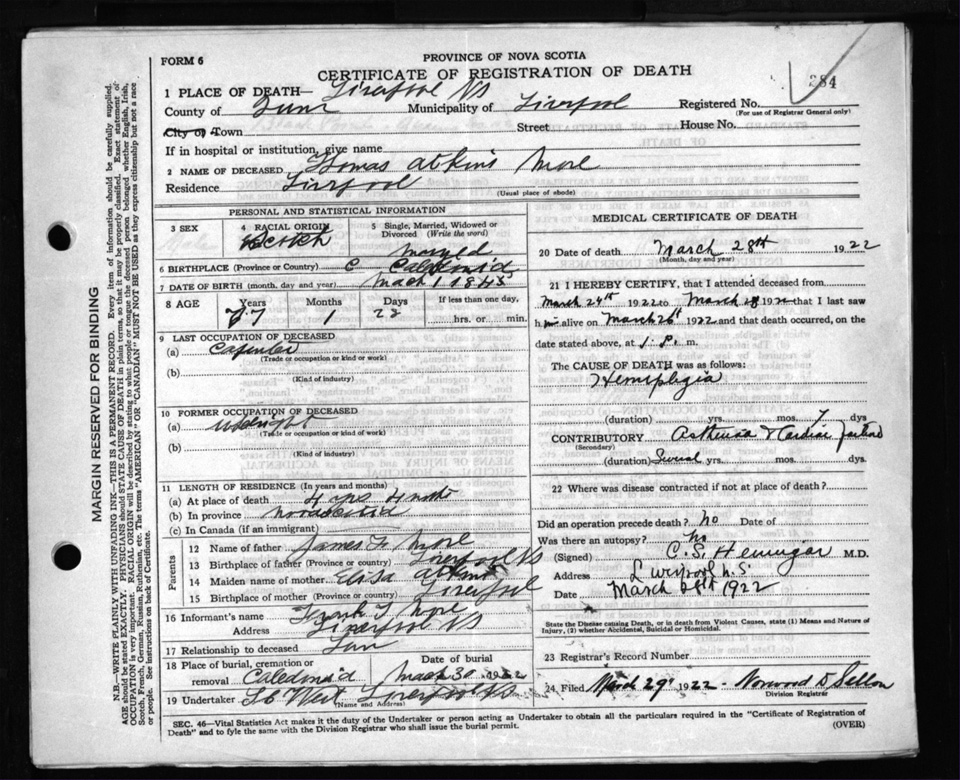 FORM 6
PROVINCE OF NOVA SCOTIA
CERTIFICATE OF REGISTRATION OF DEATH
284
1 PLACE OF DEATH— Liverpool NS
County of Municipality of Liverpool Registered No.
(For use of Registrar General only)
City or Town Street House No.
If in hospital or institution, give name
2 NAME OF DECEASED Thomas Atkins More
Residence Liverpool
(Usual place of abode)
PERSONAL AND STATISTICAL INFORMATION
3 SEX Male
4 RACIAL ORIGIN Scotch
5 Single, Married, Widowed or Divorced (Write the word)
6 BIRTHPLACE (Province or Country) Caledonia
7 DATE OF BIRTH (month, day and year) 1 1845
8 AGE Years 77 Months 1 Days 22 If less than one day, hrs. or min.
9 LAST OCCUPATION OF DECEASED
(a)
(Trade or occupation or kind or work)
(b)
(Kind of industry)
10 FORMER OCCUPATION OF DECEASED
(a)
(Trade or occupation or kind of work)
(b)
(Kind of industry)
11 LENGTH OF RESIDENCE (In years and months)
(a) At place of death 4 yrs 4
(b) In province
(c) In Canada (if an immigrant)
Parents
12 Name of father James F. More
13 Birthplace of father (Province or country) Liverpool NS
14 Maiden name of mother Atkins
15 Birthplace of mother (Province or country) Liverpool
16 Informant's name Frank More
Address Liverpool NS
17 Relationship to deceased Son
18 Place of burial, cremation or removal Caledonia Date of burial 30 1922
19 Undertaker West Liverpool NS
(Name and Address)
MEDICAL CERTIFICATE OF DEATH
20 Date of death March 28th 1922
(Month, day and year)
21 I HEREBY CERTIFY, that I attended deceased from
March 24th 1922 to March 1922 that I last saw
h im alive on March 26th 1922 and that death occurred, on the
date stated above, at m.
The CAUSE OF DEATH was as follows:
Hemiplegia
(duration) yrs. mos. 7 dys
CONTRIBUTORY Asthenia & Cardiac
(Secondary)
(duration) Several yrs. mos. dys
22 Where was disease contracted if not at place of death?
Did an operation precede death? no Date of
Was there an autopsy? no
(Signed) C. S. Hennigar M.D.
Address Liverpool N.S.
Date March 1922
State the Disease causing Death, or in death from Violent Causes, state (1) Means and Nature of
Injury, (2) whether Accidental, Suicidal or Homicidal.
23 Registrar's Record Number
24 Filed March 29th 1922 - Norwood D
Division Registrar
SEC. 46—Vital Statistics Act makes it the duty of the Undertaker or person acting as Undertaker to obtain all the particulars required in the "Certificate of Registration of
Death" and to fyle the same with the Division Registrar who shall issue the burial permit.
(OVER)
MARGIN RESERVED FOR BINDING
N.B.—WRITE PLAINLY WITH UNFADING INK—THIS IS A PERMANENT RECORD. Every item of information should be carefully supplied.
AGE should be stated EXACTLY. PHYSICIANS should STATE CAUSE OF DEATH in plain terms, so that it may be properly classified. Exact statement of
OCCUPATION is very important. RACIAL ORIGIN will be described by stating to what people or tongue the deceased person belonged whether English, Irish,
Scotch, French, German, Russian, Ruthenian, etc. The terms "AMERICAN" or "CANADIAN" MUST NOT BE USED as they express citizenship but not a race
or people. See instructions on back of Certificate.